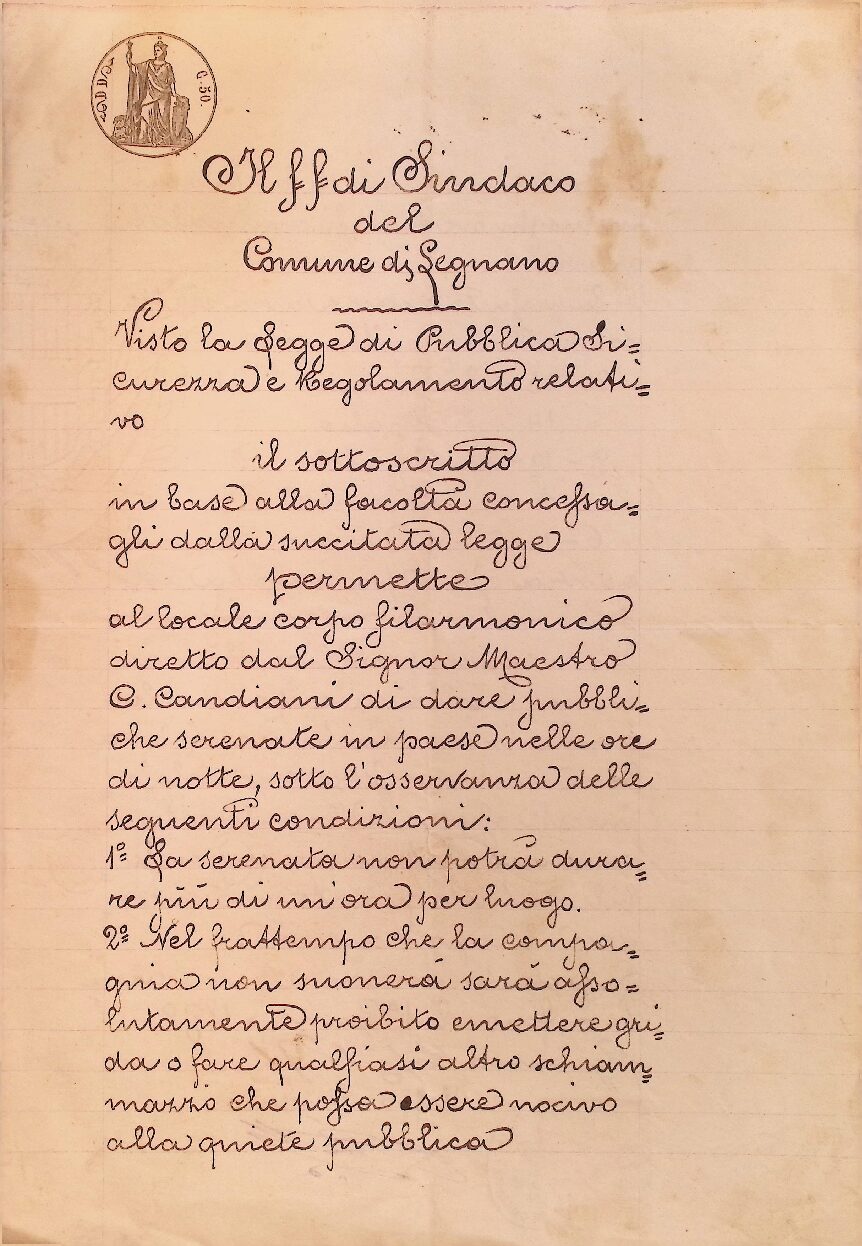 C. 50.
Il ff di Sindaco
del
Comune di Legnano
Visto la Legge di Pubblica Si=
curezza e Regolamento relati=
vo
il sottoscritto
in base alla facoltá concessa=
gli dalla succitata legge
permette
al locale corpo filarmonico
diretto dal Signor Maestro
C. Candiani di dare pubbli=
che serenate in paese nelle ore
di notte, sotto l'osservanza delle
seguenti condizioni:
1º La serenata non potrá dura=
re più di un'ora per luogo.
2º Nel frattempo che la compa=
gnia non suonerá sará asso=
lutamente proibito emettere gri=
da o fare qualsiasi altro schiam=
mazzo che possa essere nocivo
alla quiete pubblica